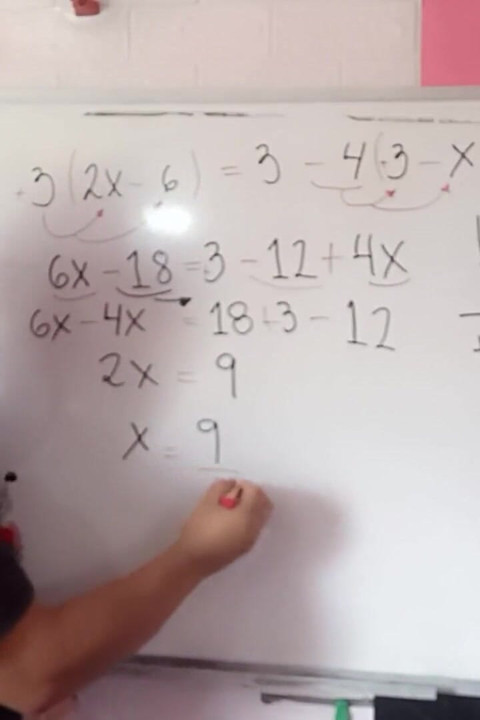 3(2x-6) = 3 - 4(3-x
6x-18=3-12+4x
6x-4x = 18+3-12
2x = 9
x = 9